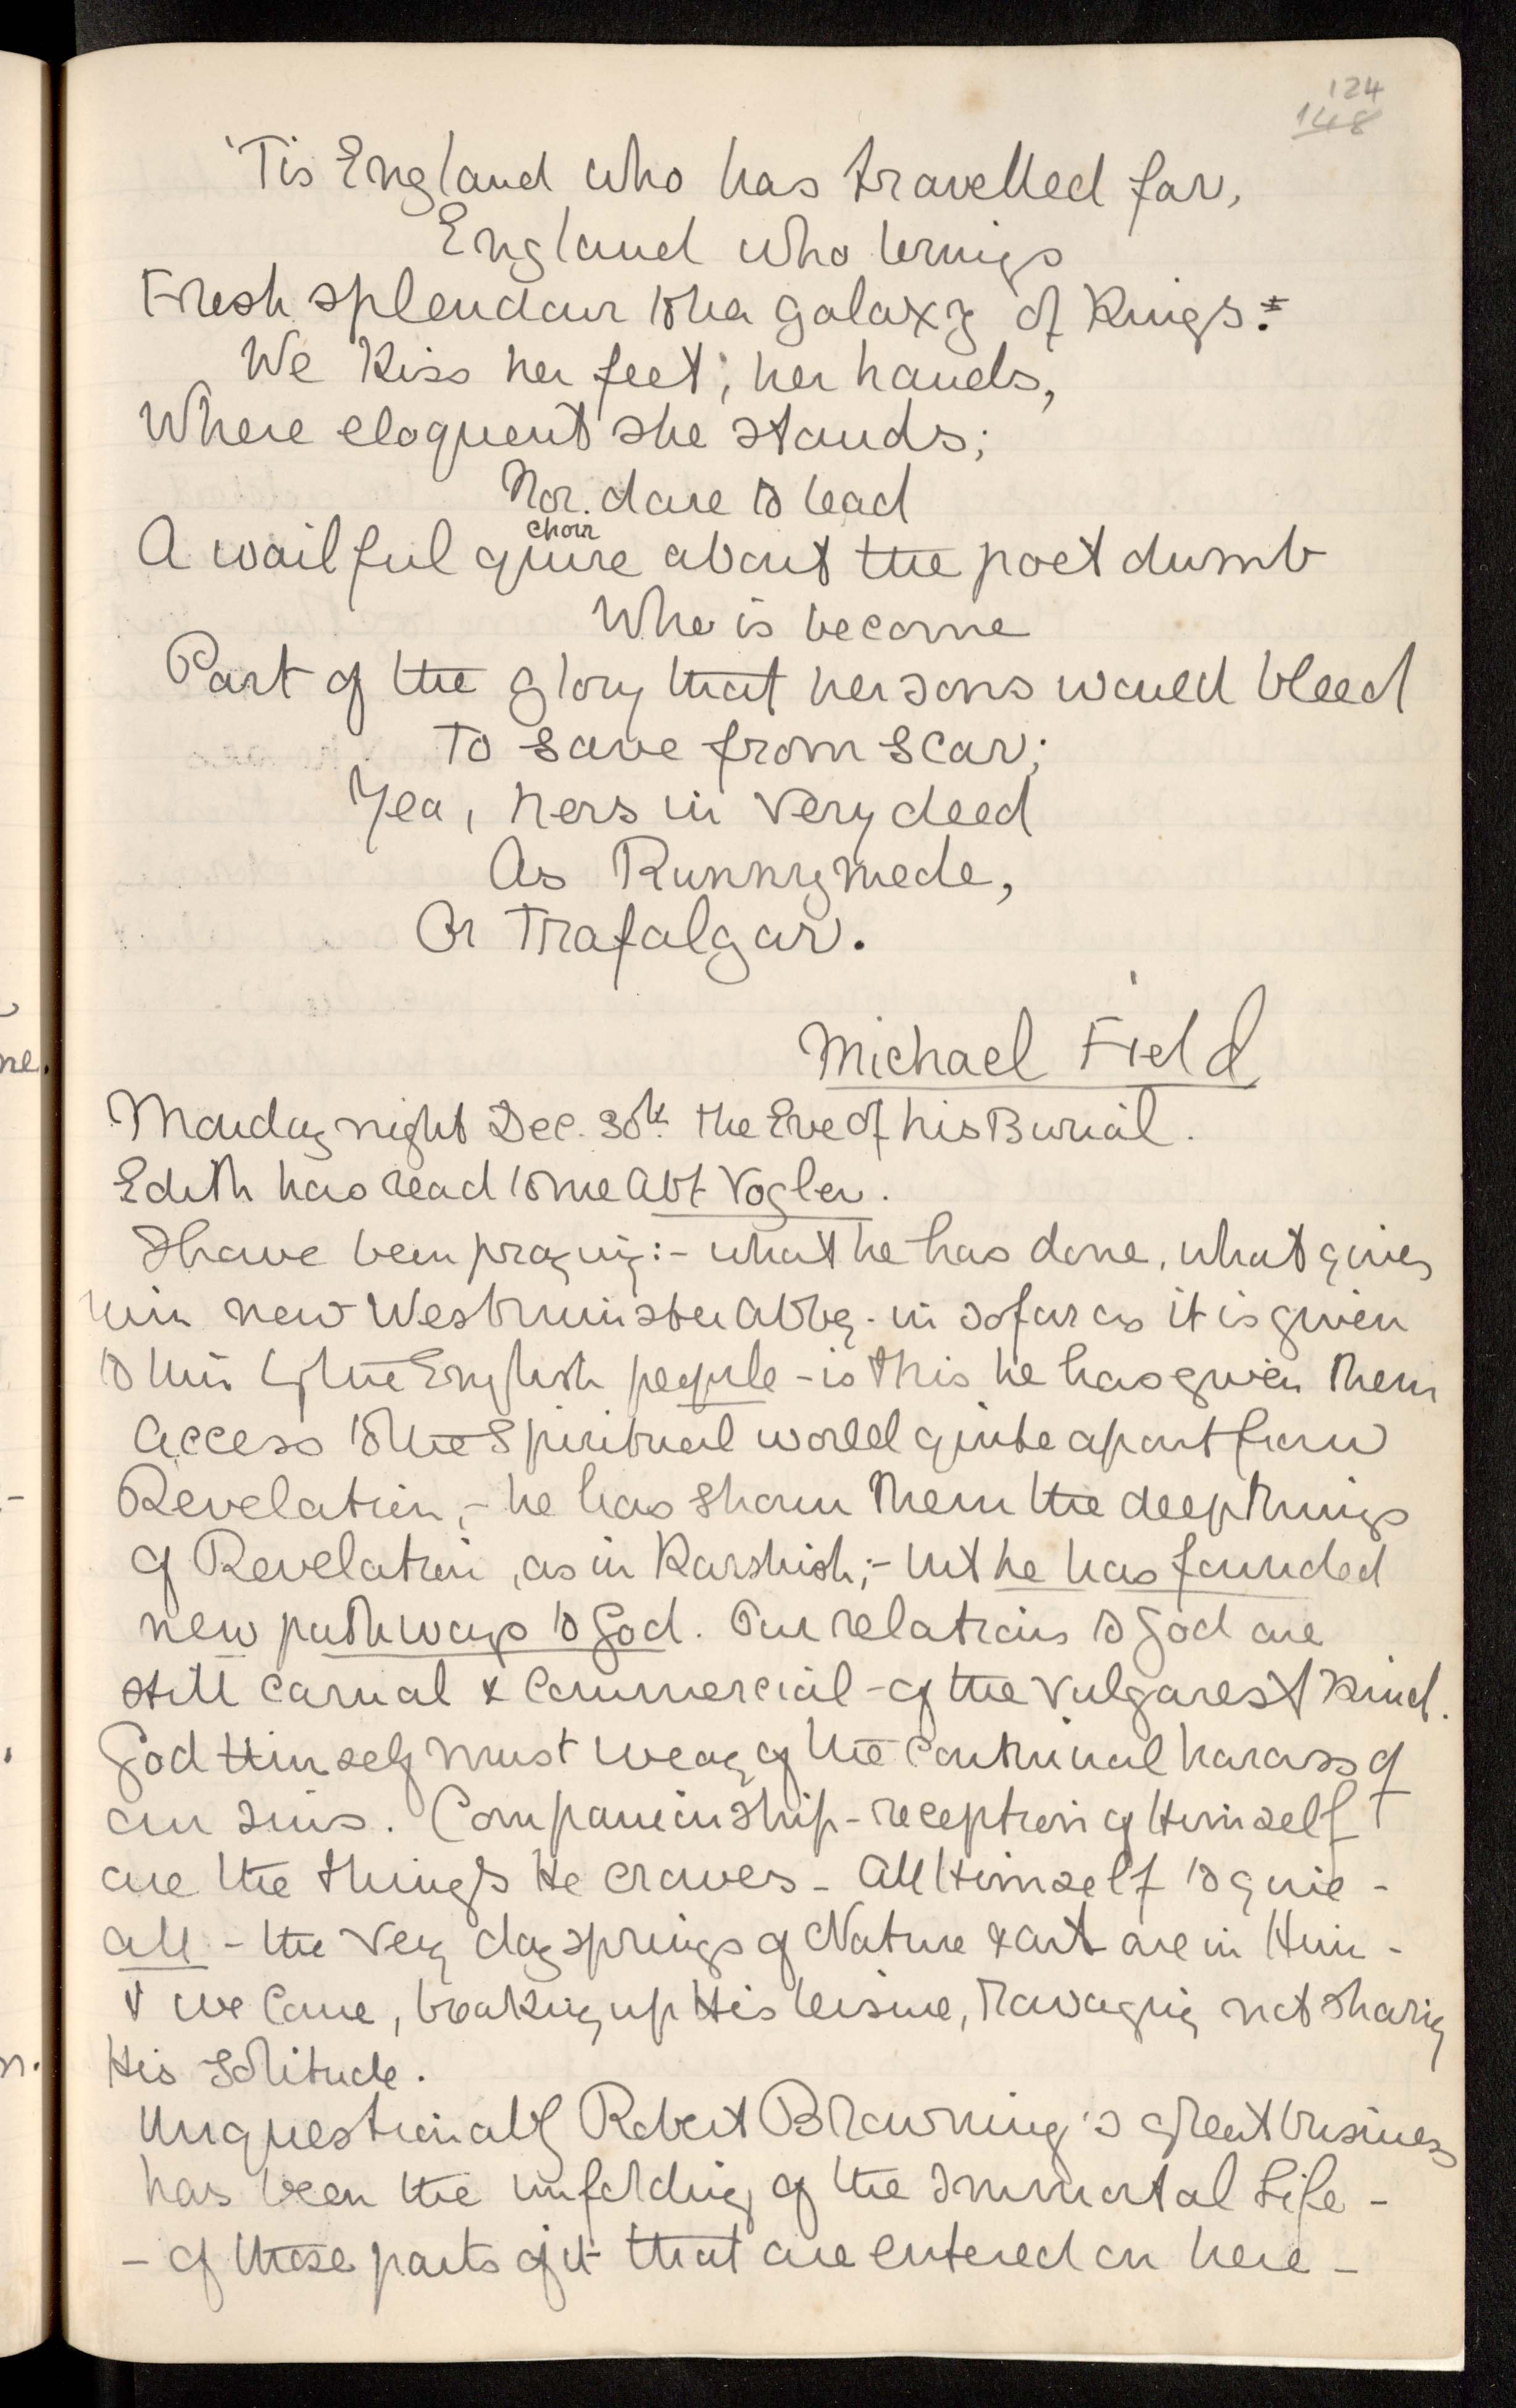 124
148
'Tis England who has travelled far,
England who brings
Fresh splendour to her galaxy of Kings:
We kiss her feet, her hands,
Where eloquent she stands;
Nor dare to lead
choir
A wailful quire about the poet dumb
Who is become
Part of the glory that her sons would bleed
To save from scar;
Yea, hers in very deed
As Runnymede,
Or Trafalgar.
Michael Field
Monday night Dec. 30th. the Eve of his Burial.
Edith has read to me Abt Vogler.
I have been praying:- what he has done, what gives
him new Westminster Abbey - in so far as it is given
to him by the English people - is this he has given them
access to the Spiritual world quite apart from
Revelation, - he has shown them the deep things
of Revelation, as in Karshish; - but he has founded
new pathways to God. Our relations to God are
still carnal & commercial - of the vulgarest kind.
God Himself must weary of the continual harass of
our sins. Companionship - reception of Himself
are the things He craves - All Himself to give -
all - the very daysprings of Nature & art are in Him -
& we came, breaking up His leisure, ravaging not sharing
His solitude.
Unquestionably Robert Browning's great business
has been the unfolding of the Immortal Life -
- of those parts of it that are entered on here -